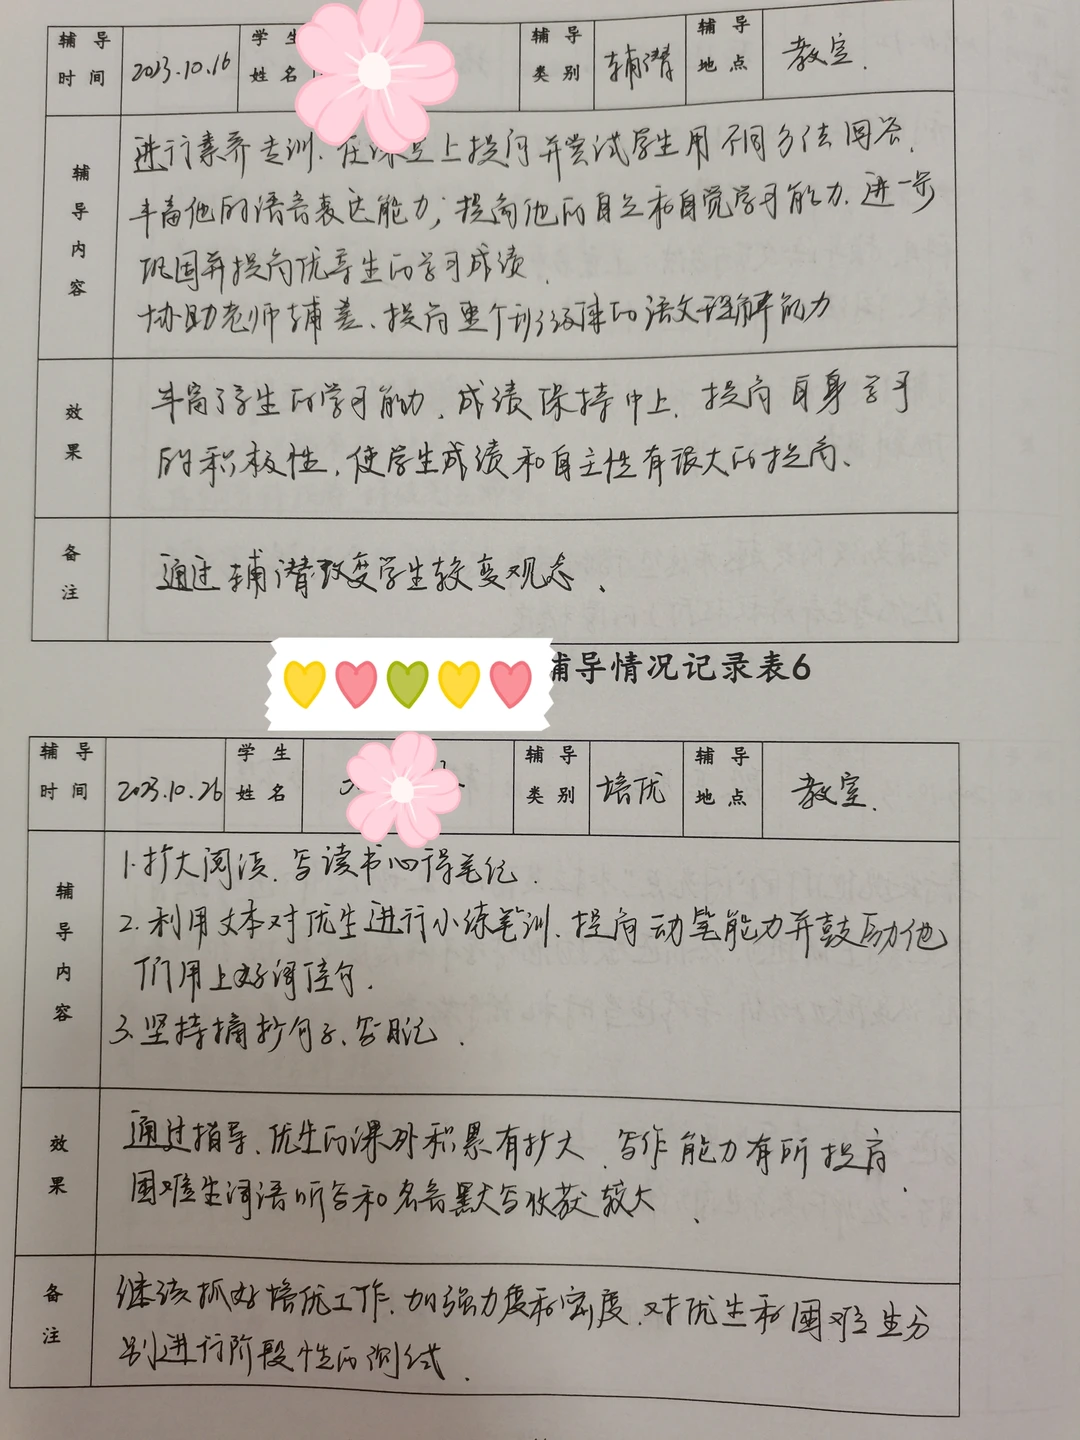 辅导时间 2023.10.16 学生姓名 辅导类别 辅潜 辅导地点 教室.
辅导内容
进行素养专训.在课堂上提问并尝试学生用不同方法回答.
丰富他的语言表达能力;提高他的自主和自觉学习能力.进一步
巩固并提高优等生的学习成绩.
协助老师辅差、提高整个班级体的语文理解能力
效果
丰富了学生的学习能力.成绩保持中上.提高自身学习
的积极性.使学生成绩和自主性有很大的提高、
备注
通过辅潜改变学生较变观态、
辅导情况记录表6
辅导时间 2023.10.26 学生姓名 辅导类别 培优 辅导地点 教室.
辅导内容
1.扩大阅读.写读书心得笔记.
2.利用文本对优生进行小练笔训.提高动笔能力并鼓励他
们用上好词佳句.
3.坚持摘抄句子、写日记.
效果
通过指导.优生的课外积累有扩大.写作能力有所提高.
困难生词语听写和名言默写收获较大.
备注
继续抓好培优工作.加强力度和密度.对优生和困难生分
别进行阶段性的测试.